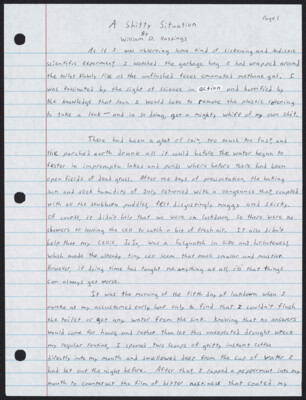 Page 1
A Shitty Situation
By
William D. Hastings
As if I was observing some kind of sickening and sadistic
scientific experiment I watched the garbage bag I had wrapped around
the toilet slowly rise as the unflushed feces emanated methane gas. I
was fascinated by the sight of science in action and horrified by
the knowledge that soon I would have to remove the plastic covering
to take a leak — and in so doing, get a mighty whiff of my own shit.
There had been a glut of rain, too much too fast, and
the parched earth drank all it could before the water began to
fester in impromptu lakes and ponds where before there had been
open fields of dead grass. After two days of precipitation, the baking
sun and sick humidity of July returned with a vengeance that, coupled
with all the stubborn puddles, felt disgustingly muggy and shitty.
Of course, it didn't help that we were on lockdown, so there were no
showers or leaving the cell to catch a bit of fresh air. It also didn't
help that my cellie, JoJo, was a Sasquatch in size and hairiness
which made the already tiny cell seem that much smaller and nastier.
However, if doing time has taught me anything at all, it's that things
can always get worse.
It was the morning of the fifth day of lockdown when I
awoke at my accustomed early hour only to find that I couldn't flush
the toilet or get any water from the sink. Knowing that no answers
would come for hours and rather than let this unexpected drought wreck
my regular routine, I spooned two heaps of gritty instant coffee
directly into my mouth and swallowed deep from the cup of water I
had set out the night before. After that I popped a peppermint into my
mouth to counteract the film of bitter nastiness that coated my